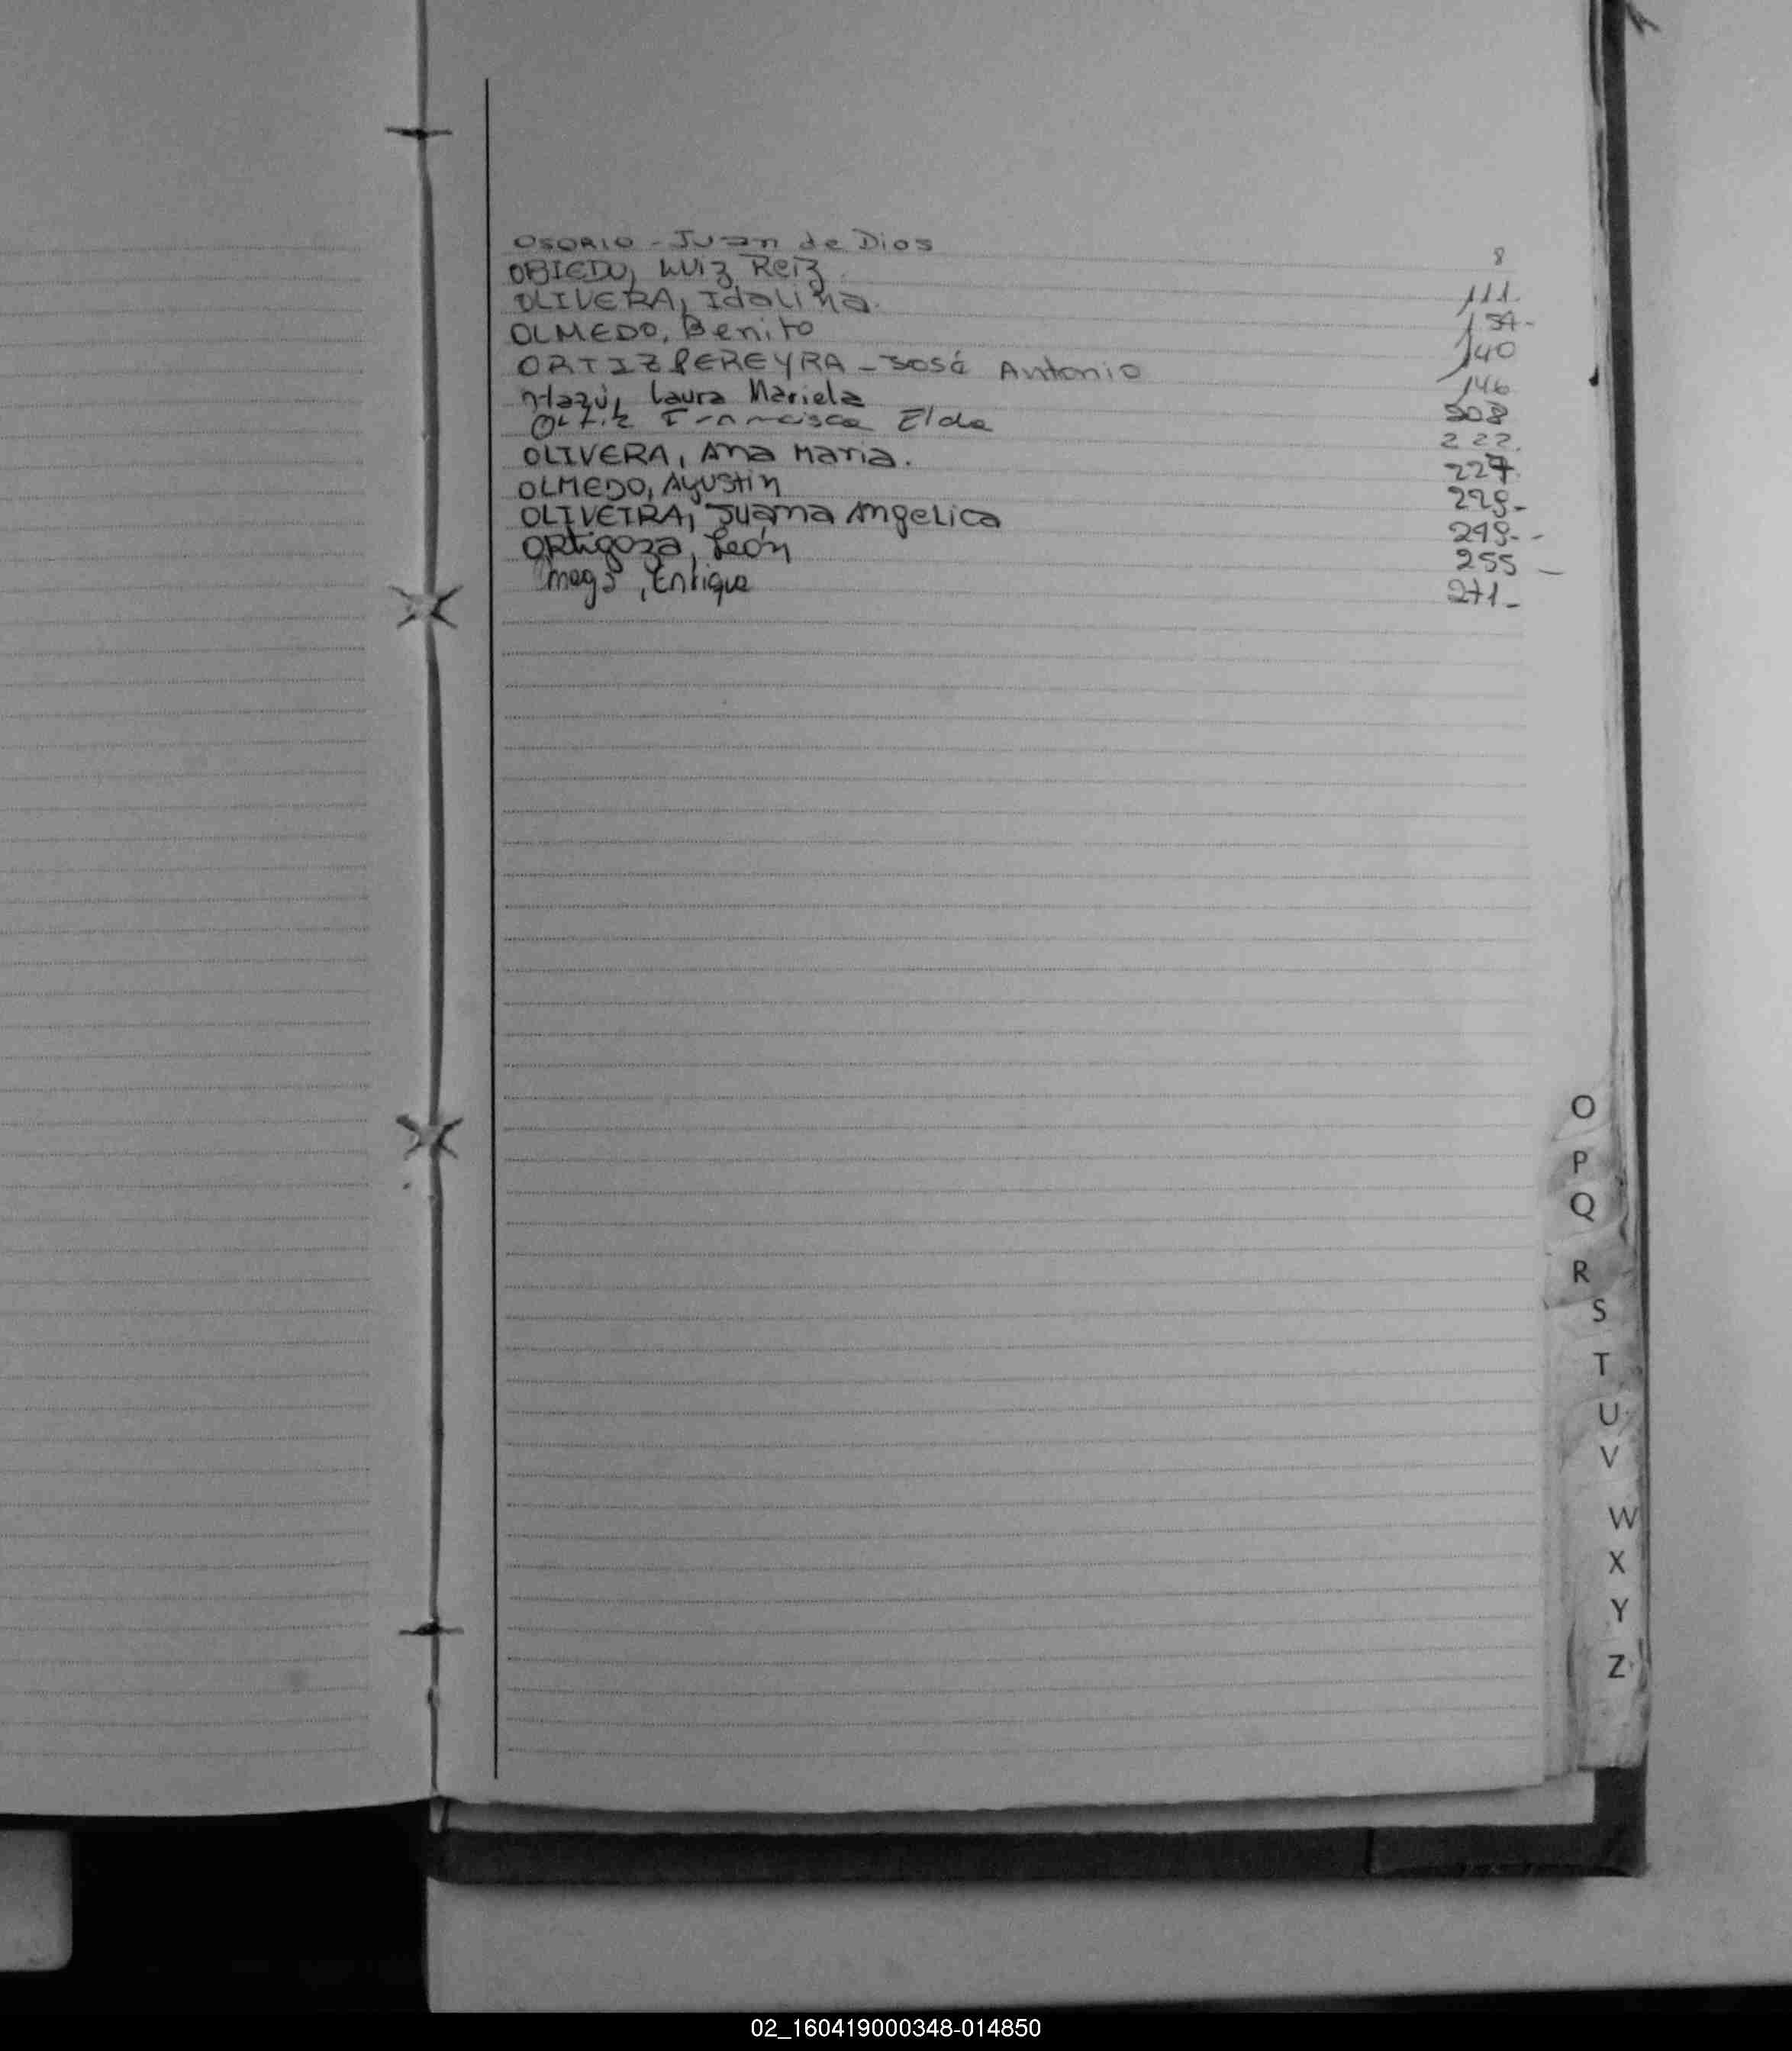 OSORIO - Juan de Dios 8
OBIEDU, Luiz Reiz 111
OLIVERA, Idalina. 134-
OLMEDO, Benito 140
ORTIZ PEREYRA - José Antonio 146
Laura Mariela 208
Ortiz Francisca Elda 222.
OLIVERA, Ana Maria. 227.
OLMEDO, Agustin 229-
OLIVEIRA, Juana Angelica 249-
Ortigoza, León 255
, Enrique 271-
O
P
Q
R
S
T
U
V
W
X
Y
Z
02_160419000348-014850